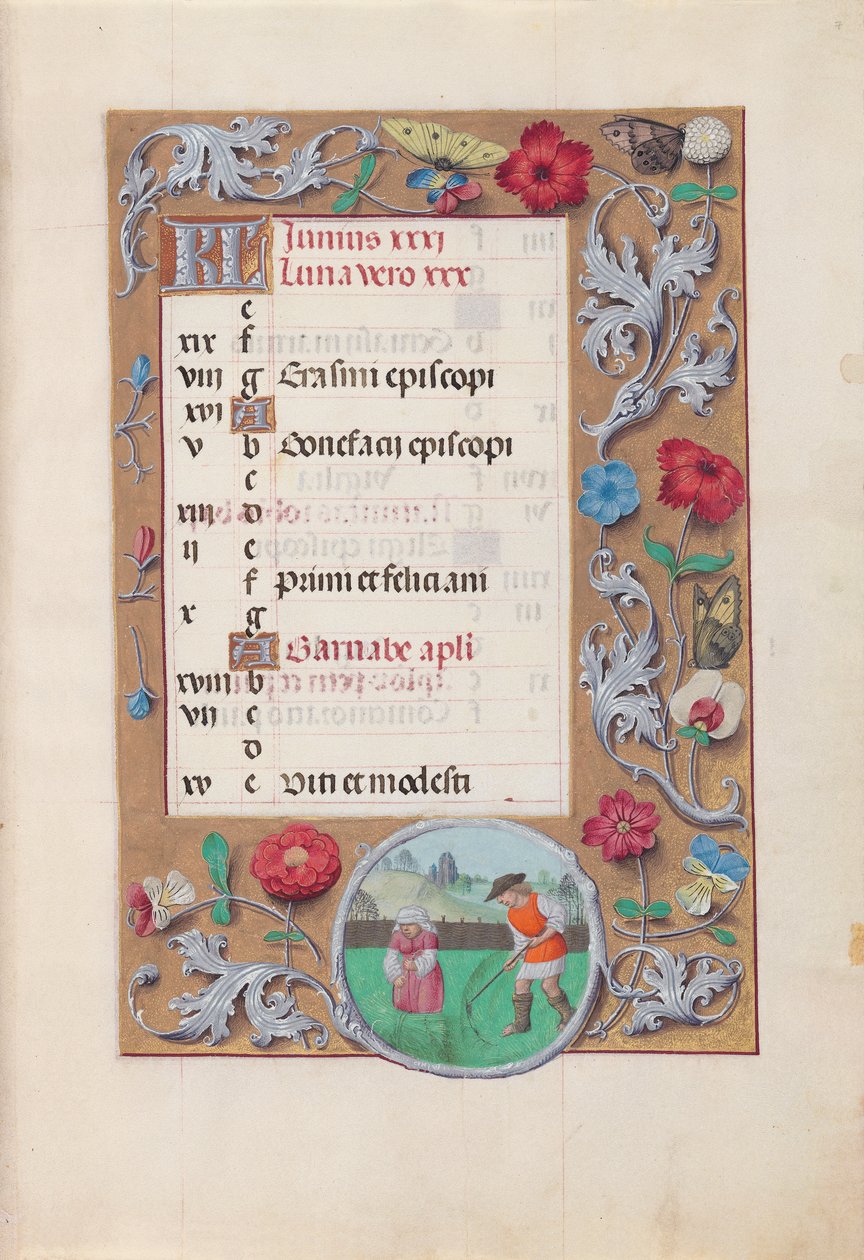 KL Junius xxxj
Luna vero xxx
e
xix f
viij g Erasmi episcopi
xvj A
v b Bonefacij episcopi
c
xiij d
ij e
f Primi et feliciani
x g
A Barnabe apli
xviij b
vij c
d
xv e Viti et modesti